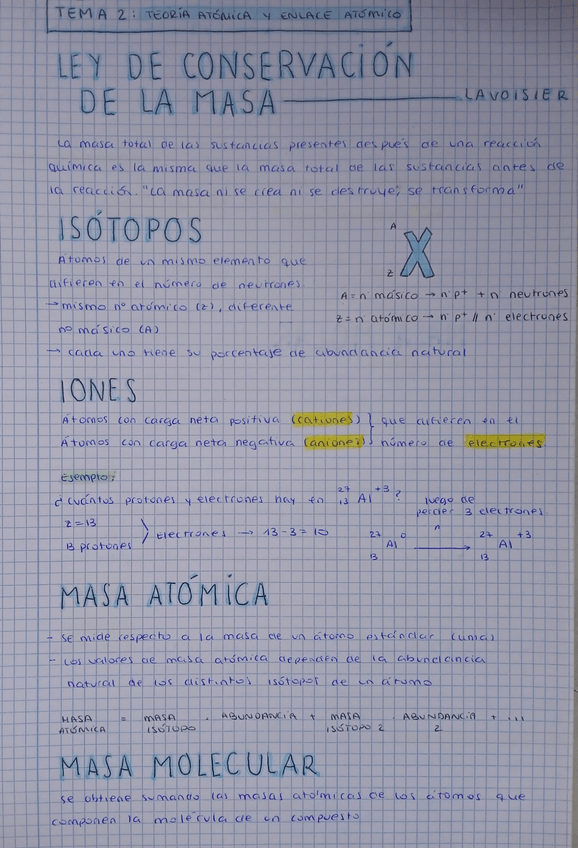 TEMA 2: TEORÍA ATÓMICA Y ENLACE ATÓMICO
LEY DE CONSERVACIÓN
DE LA MASA — LAVOISIER
La masa total de las sustancias presentes después de una reacción
química es la misma que la masa total de las sustancias antes de
la reacción. "La masa ni se crea ni se destruye, se transforma"
ISÓTOPOS
Átomos de un mismo elemento que
difieren en el número de neutrones.
→ mismo nº atómico (z), diferente
nº másico (A)
→ cada uno tiene su porcentaje de abundancia natural
A
X
Z
A = nº másico → nº p⁺ + nº neutrones
Z = nº atómico → nº p⁺ // nº electrones
IONES
Átomos con carga neta positiva (cationes) } que difieren en el
Átomos con carga neta negativa (aniones) } número de electrones
Ejemplo:
¿cuántos protones y electrones hay en ²⁷₁₃Al⁺³?
z = 13
13 protones
} electrones → 13 - 3 = 10
luego de
perder 3 electrones
²⁷₁₃Al⁰ → ²⁷₁₃Al⁺³
MASA ATÓMICA
- Se mide respecto a la masa de un átomo estándar (uma)
- Los valores de masa atómica dependen de la abundancia
natural de los distintos isótopos de un átomo
MASA ATÓMICA = MASA ISÓTOPO · ABUNDANCIA + MASA ISÓTOPO 2 · ABUNDANCIA 2 + ...
MASA MOLECULAR
Se obtiene sumando las masas atómicas de los átomos que
componen la molécula de un compuesto